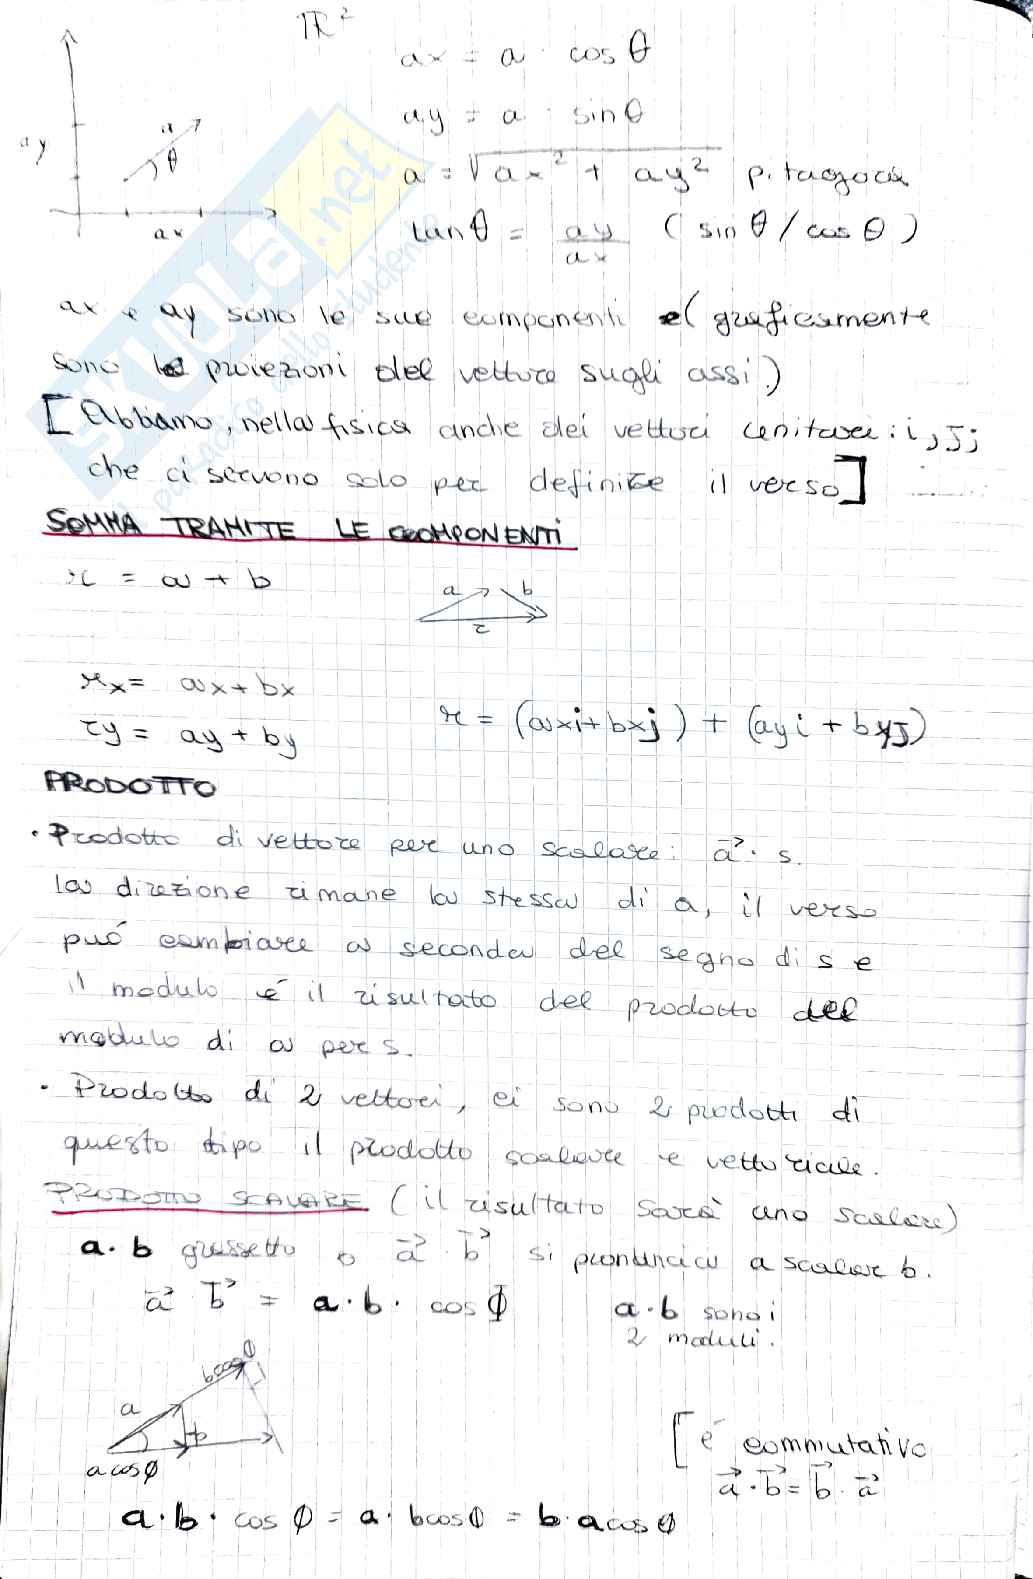 ℝ²
ax = a · cos θ
ay = a · sin θ
a = √ax² + ay² pitagora
tan θ = ay/ax ( sin θ / cos θ )
ay
a
θ
ax
SKUOLA.net
ax e ay sono le sue componenti (graficamente
sono le proiezioni del vettore sugli assi)
[Abbiamo, nella fisica anche dei vettori unitari: i, j;
che ci servono solo per definire il verso]
SOMMA TRAMITE LE COMPONENTI
r = a + b
a b
r
rx = ax + bx
ry = ay + by
r = (axi + bxj) + (ayi + byj)
PRODOTTO
· Prodotto di vettore per uno scalare: a⃗ · s.
la direzione rimane la stessa di a, il verso
puó cambiare a seconda del segno di s e
il modulo é il risultato del prodotto del
modulo di a per s.
· Prodotto di 2 vettori, ci sono 2 prodotti di
questo tipo il prodotto scalare e vettoriale.
PRODOTTO SCALARE (il risultato sarà uno scalare)
a · b grassetto o a⃗ · b⃗ si pronuncia a scalar b.
a⃗ b⃗ = a · b · cos ϕ
a · b sono i
2 moduli.
b cos ϕ
a
b
a cos ϕ
[é commutativo
a⃗ · b⃗ = b⃗ · a⃗
a · b · cos ϕ = a · b cos ϕ = b · a cos ϕ